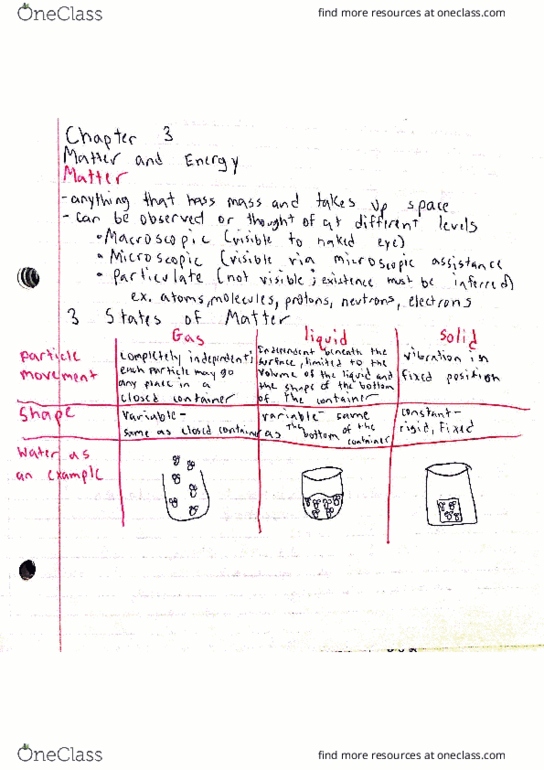 OneClass
find more resources at oneclass.com
Chapter 3
Matter and Energy
Matter
- anything that hass mass and takes up space
- can be observed or thought of at different levels
• Macroscopic (visible to naked eye)
• Microscopic (visible via microscopic assistance
• particulate (not visible; existence must be inferred)
ex. atoms, molecules, protons, neutrons, electrons
3 States of Matter
Gas
liquid
solid
particle
movement
completely independent;
each particle may go
any place in a
closed container
Independent beneath the
surface, limited to the
volume of the liquid and
the shape of the bottom
of the container
vibration in
fixed position
Shape
variable-
same as closed container
variable- same
as the bottom of the container
constant-
rigid, fixed
Water as
an example
OneClass
find more resources at oneclass.com